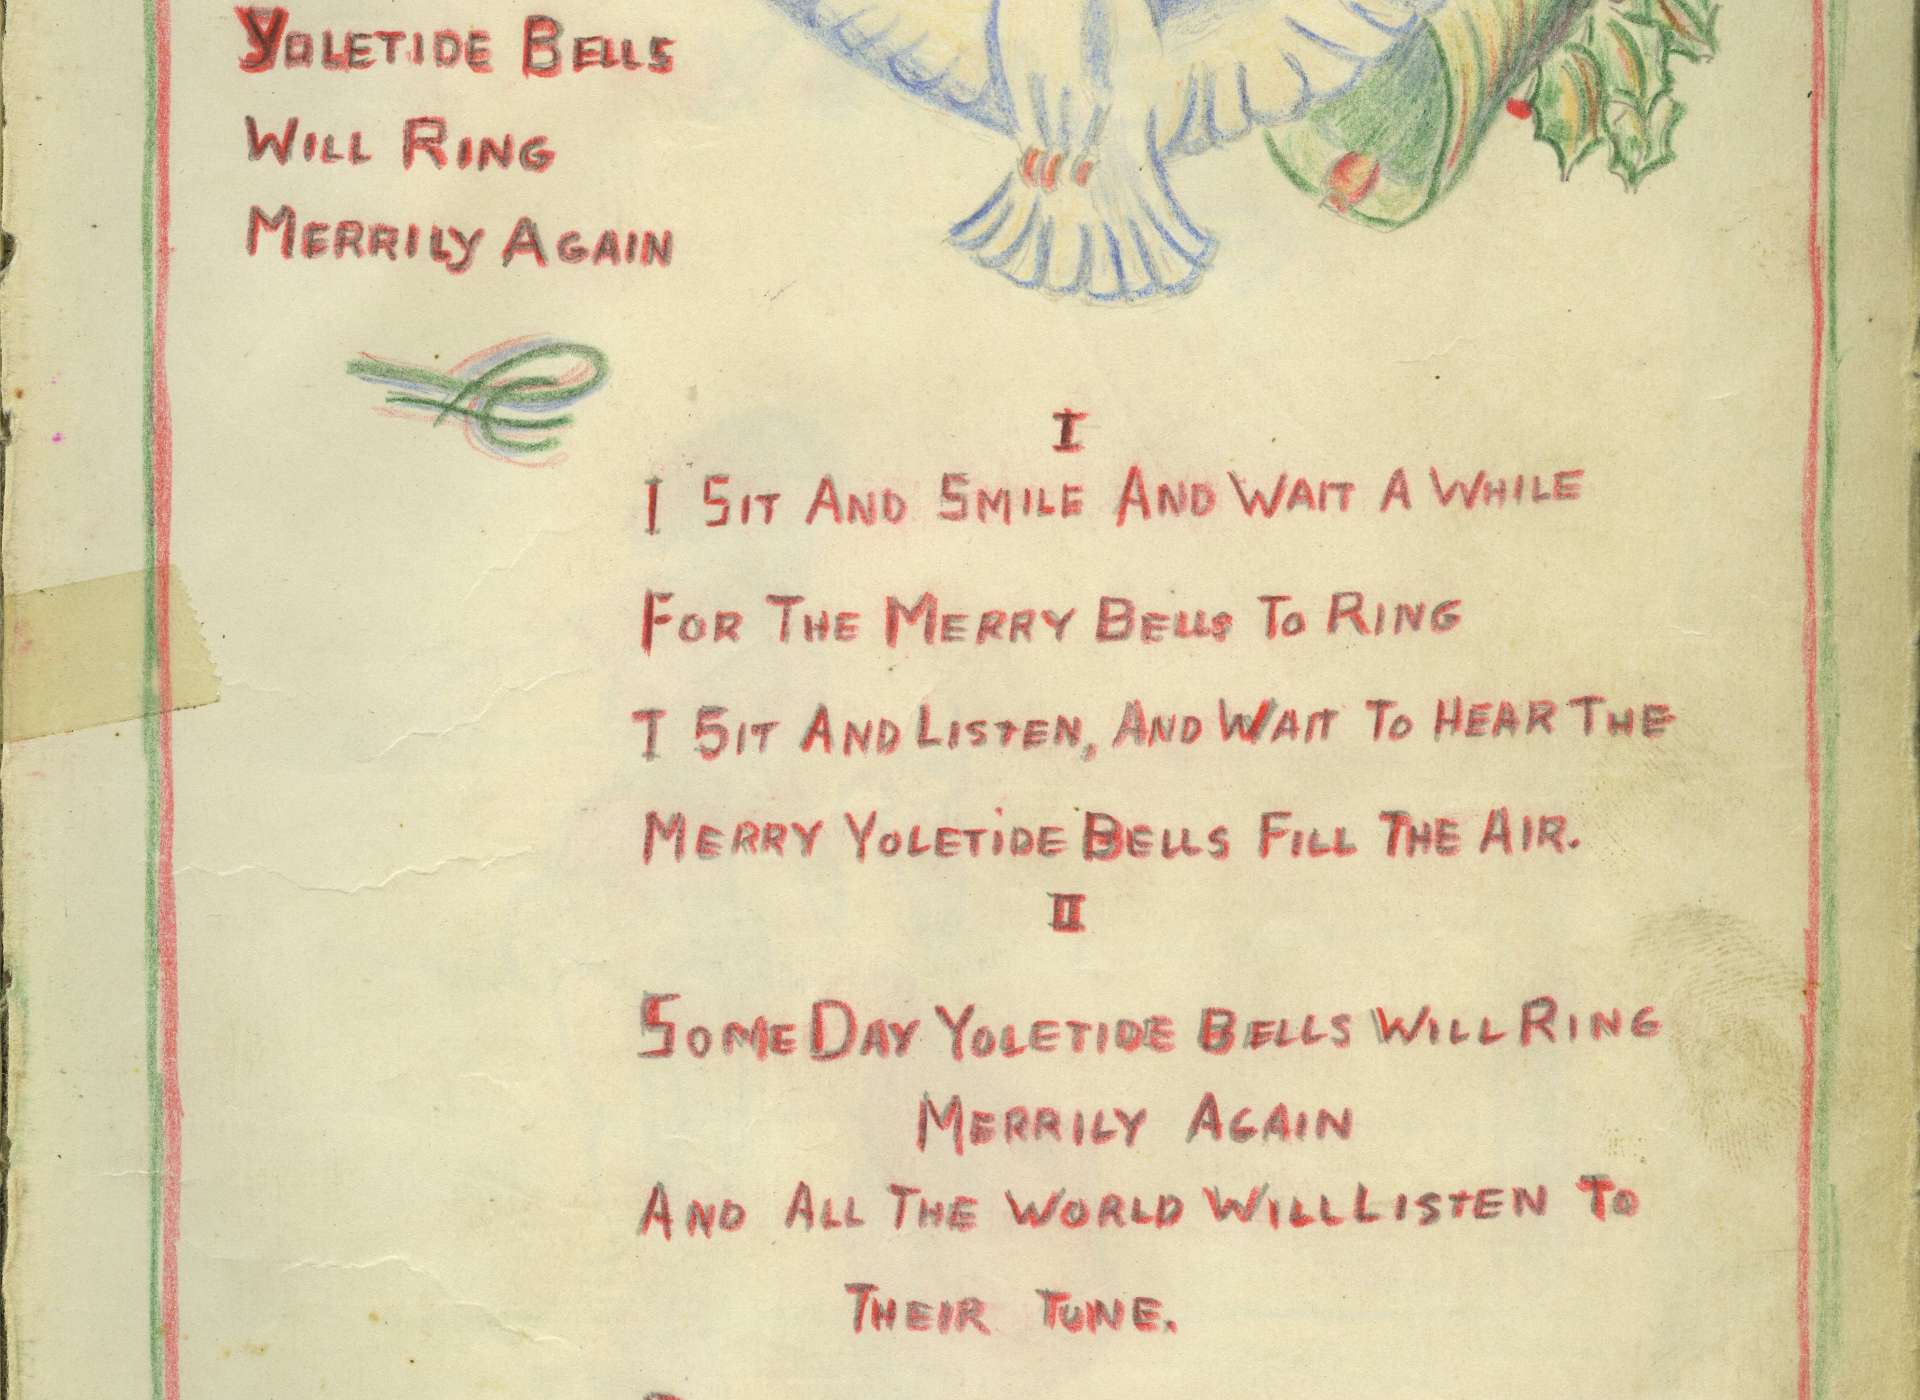 YOLETIDE BELLS
WILL RING
MERRILY AGAIN
I
I SIT AND SMILE AND WAIT A WHILE
FOR THE MERRY BELLS TO RING
I SIT AND LISTEN, AND WAIT TO HEAR THE
MERRY YOLETIDE BELLS FILL THE AIR.
II
SOME DAY YOLETIDE BELLS WILL RING
MERRILY AGAIN
AND ALL THE WORLD WILL LISTEN TO
THEIR TUNE.